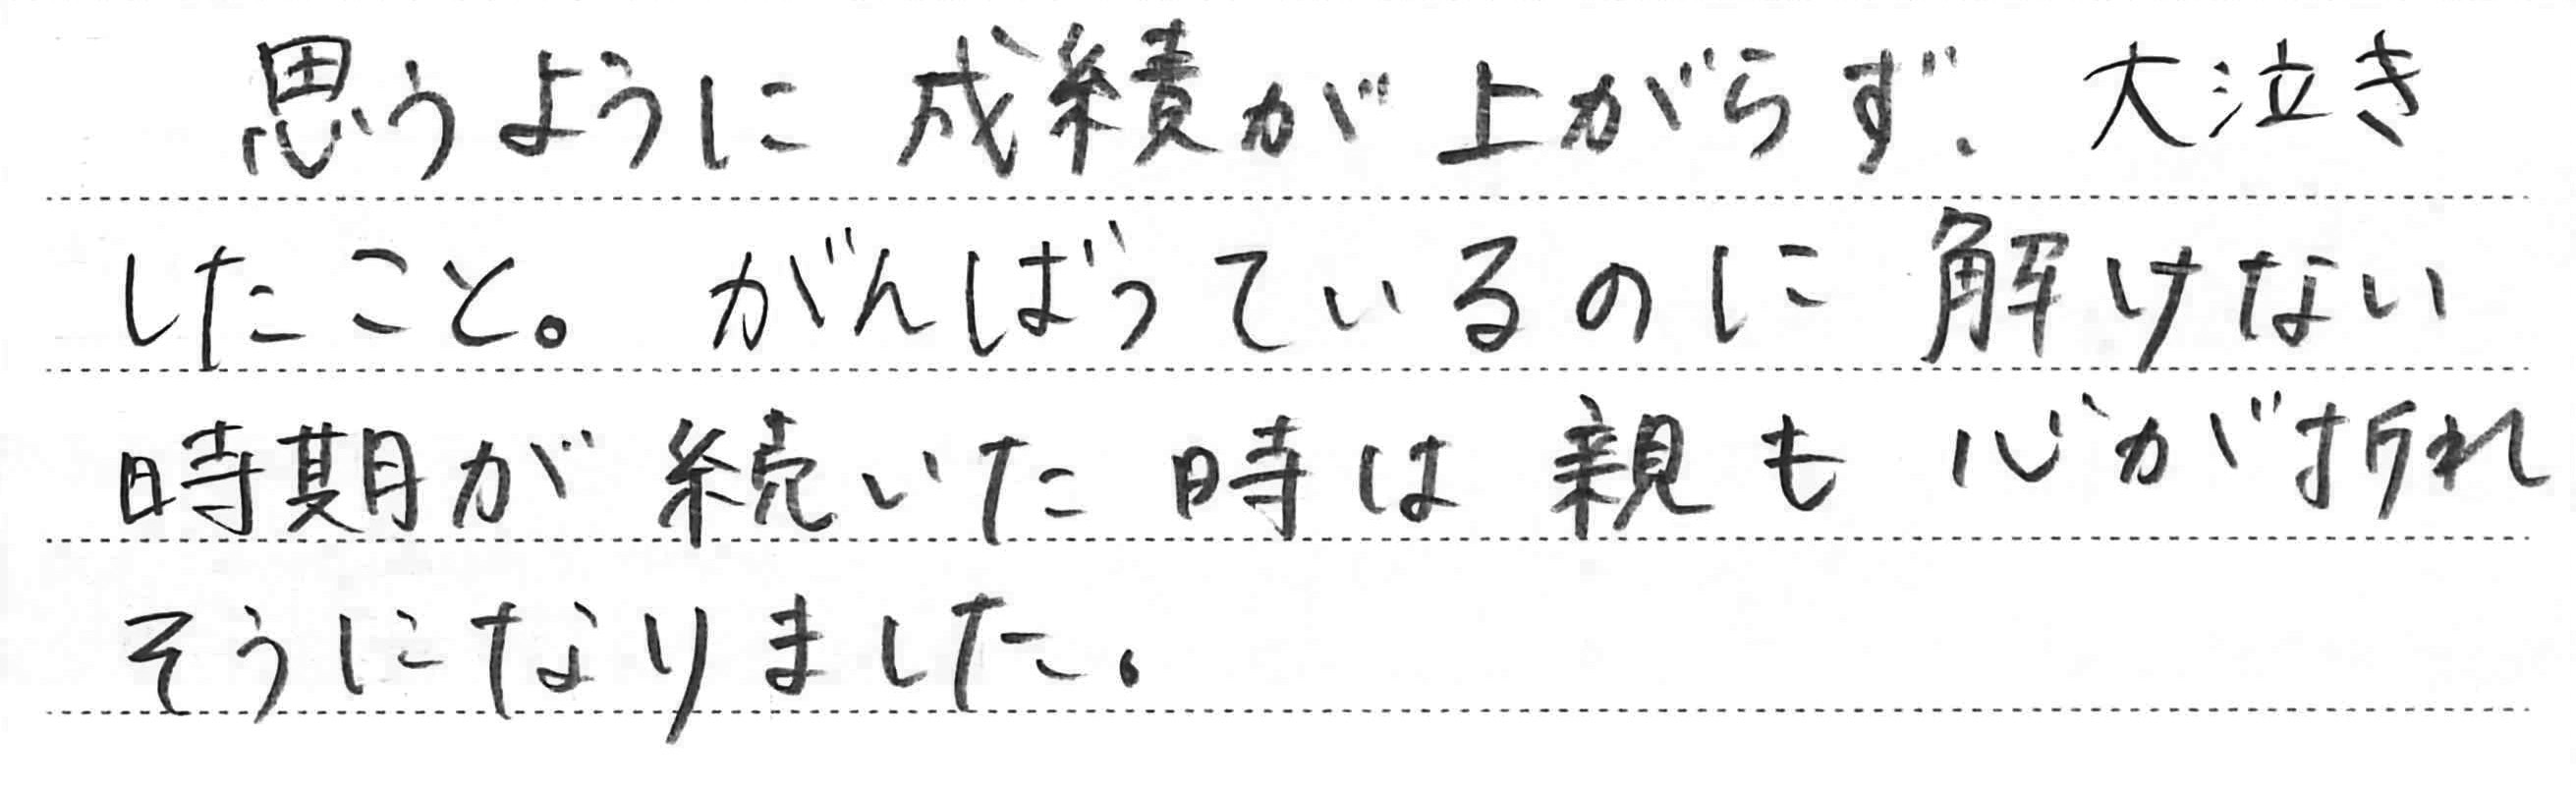 思うように成績が上がらず、大泣き
したこと。がんばっているのに解けない
時期が続いた時は親も心が折れ
そうになりました。